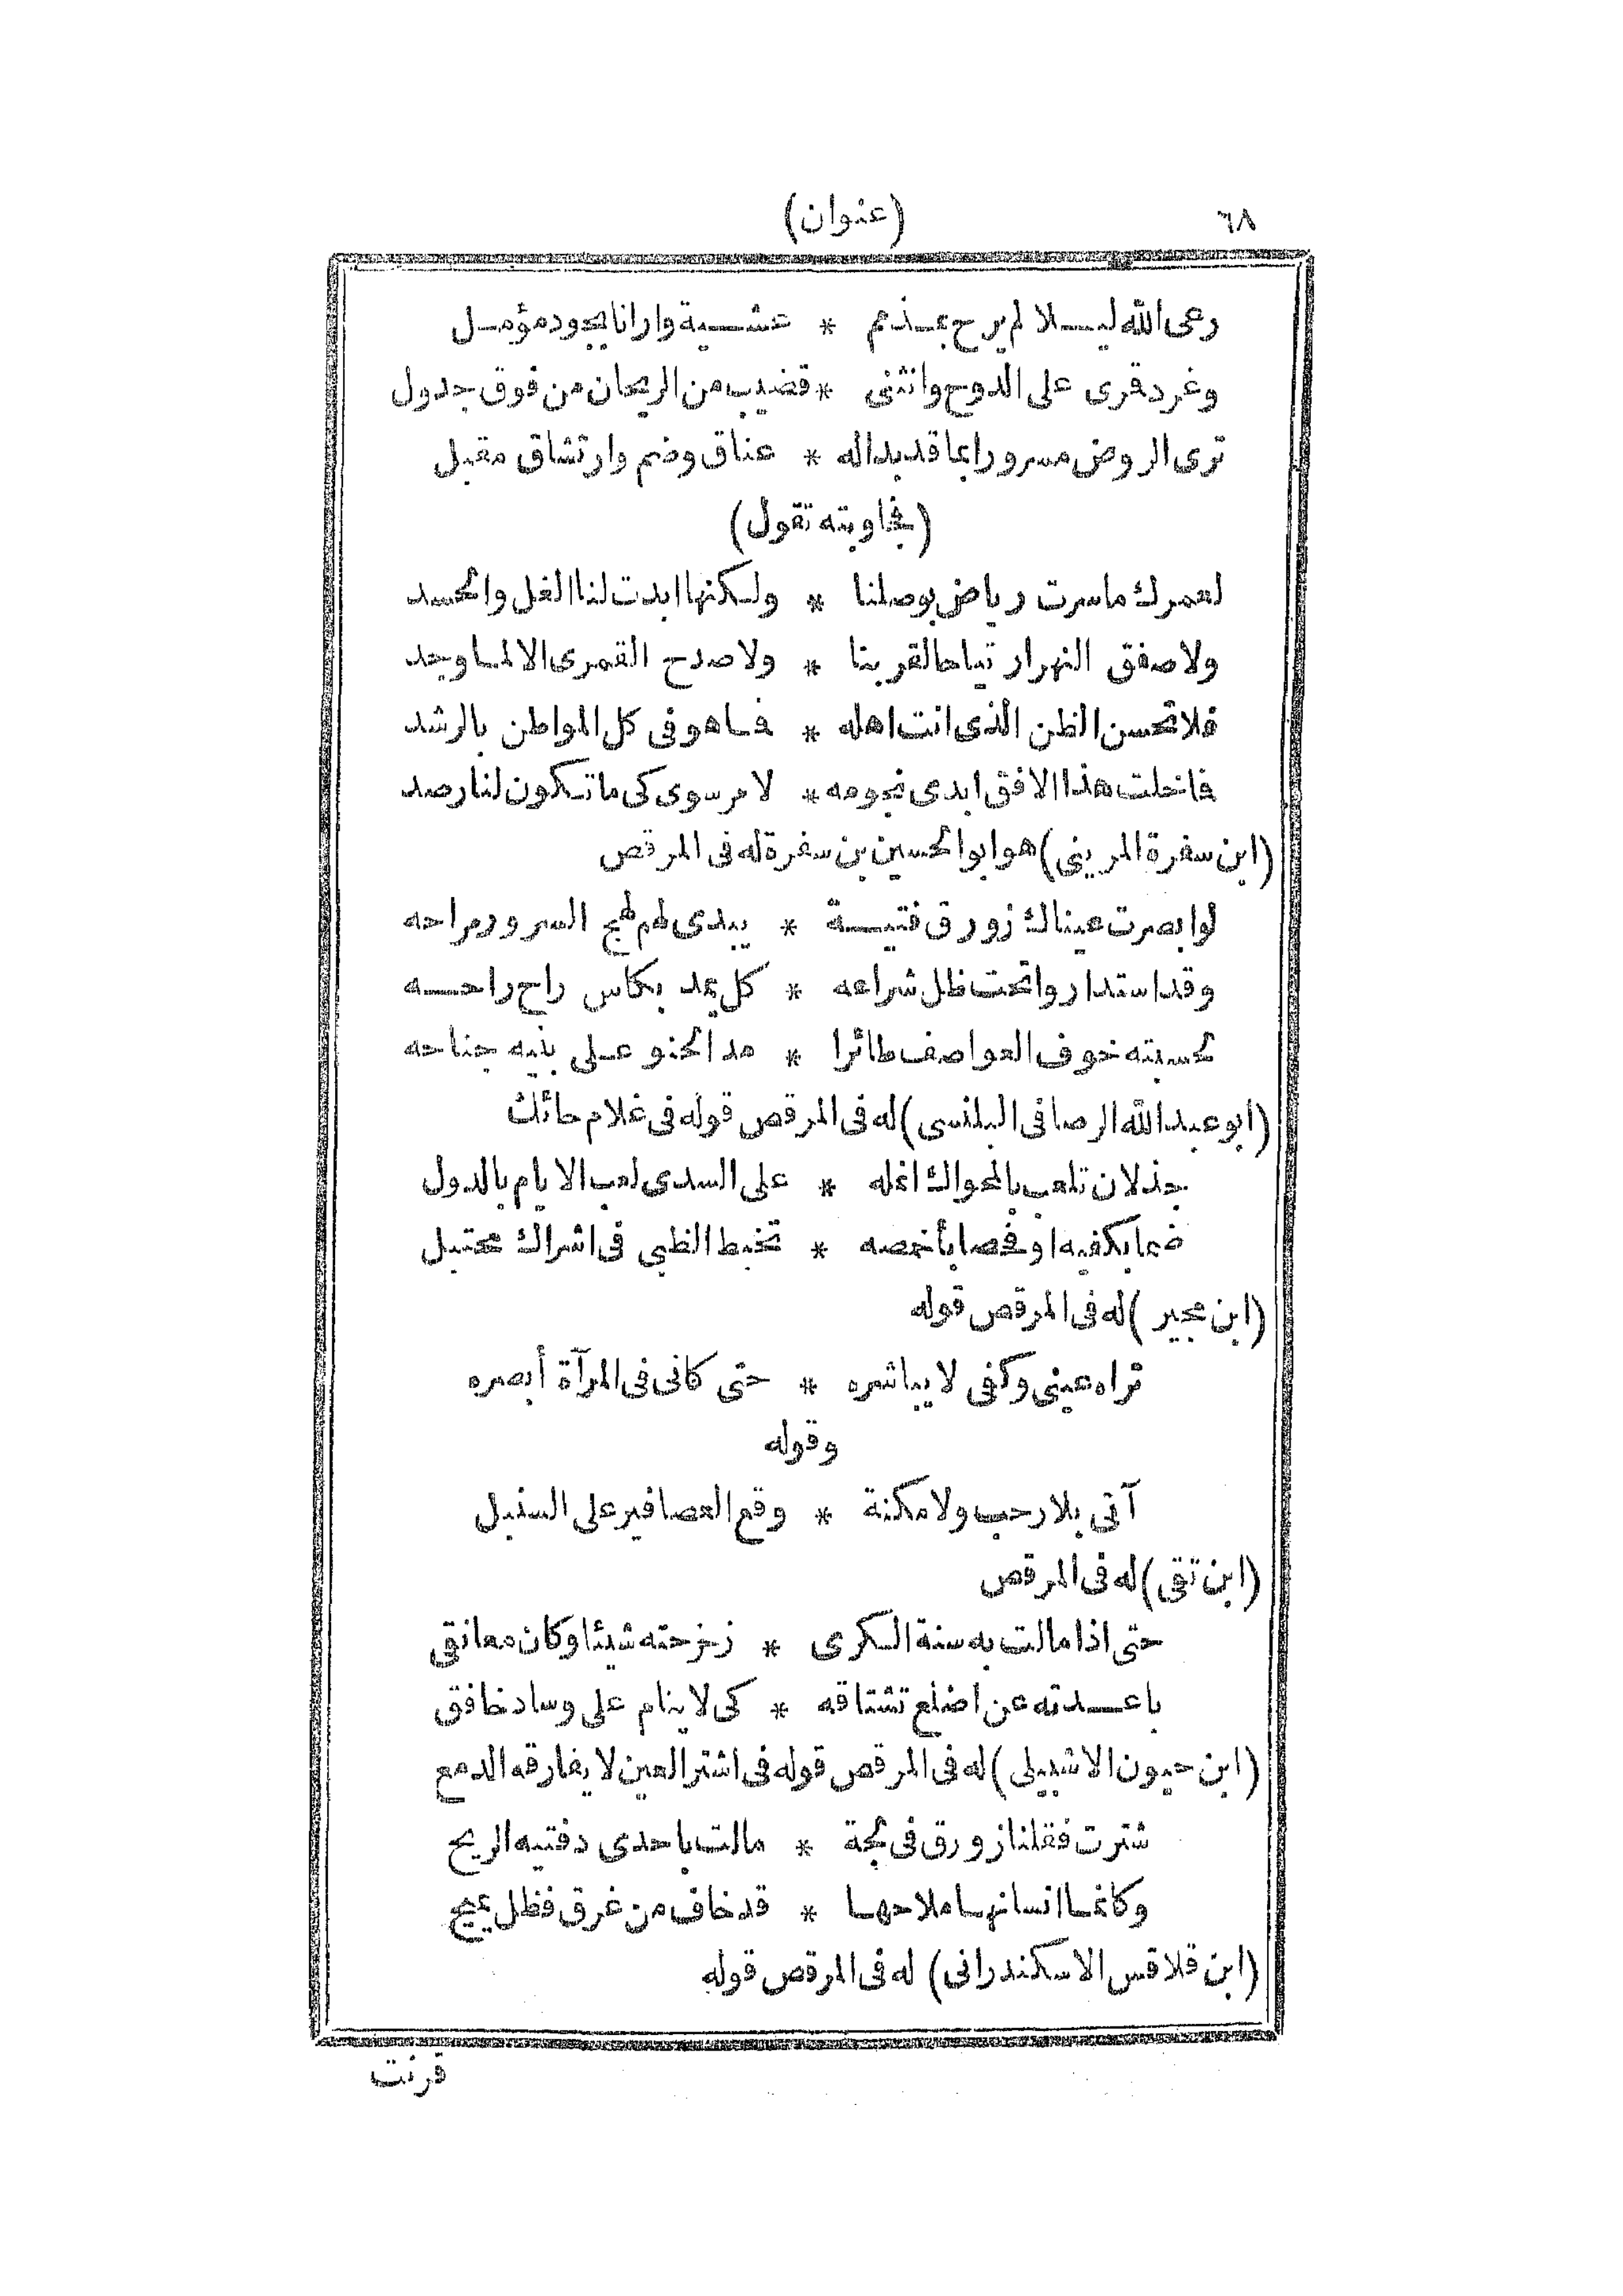 ٦٨
(عنوان)
رعى الله ليلا لم يرح بمذمم * عشية وارانا بجود مؤمل
وغرد قرى على الدوح وانثنى * قضيب من الريحان من فوق جدول
ترى الروض مسرورا بما قد بدا له * عناق وضم وارتشاق مقبل
(فجاوبته تقول)
لعمرك ما سرت رياض بوصلنا * ولكنها ابدت لنا الغل والحسد
ولا صفق النهر ارتياحا لقربنا * ولا صدح القمرى الا لما وجد
فلا تحسن الظن الذى انت اهله * فما هو فى كل المواطن بالرشد
فما خلت هذا الافق ابدى نجومه * لامر سوى كى ما تكون لنا رصد
(ابن سفرة المرينى) هو ابو الحسين بن سفرة له فى المرقص
لو ابصرت عيناك زورق فتية * يبدى لهم لهج السرور مراحه
وقد استداروا تحت ظل شراعه * كل يمد بكاس راح راحه
لحسبته خوف العواصف طائرا * مد الحنو على بنيه جناحه
(ابو عبد الله الرصافى البلنسى) له فى المرقص قوله فى غلام حائك
جذلان تلعب بالمحواك انمله * على السدى لعب الايام بالدول
ضما بكفيه او فحصا بأخمصه * تخبط الظبى فى اشراك محتبل
(ابن مجير) له فى المرقص قوله
تراه عينى وكفى لا يباشره * حتى كانى فى المرآة أبصره
وقوله
آتى بلا رحب ولا مكنة * وقع العصافير على السنبل
(ابن تقى) له فى المرقص
حتى اذا مالت به سنة الكرى * زحزحته شيئا وكان معانقى
باعدته عن اضلع تشتاقه * كى لا ينام على وساد خافق
(ابن حيون الاشبيلى) له فى المرقص قوله فى اشتر العين لا يفارقه الدمع
شترت فقلنا زورق فى لجة * مالت باحدى دفتيه الريح
وكانما انسانها ملاحها * قد خاف من غرق فظل يميح
(ابن قلاقس الاسكندرانى) له فى المرقص قوله
قرنت